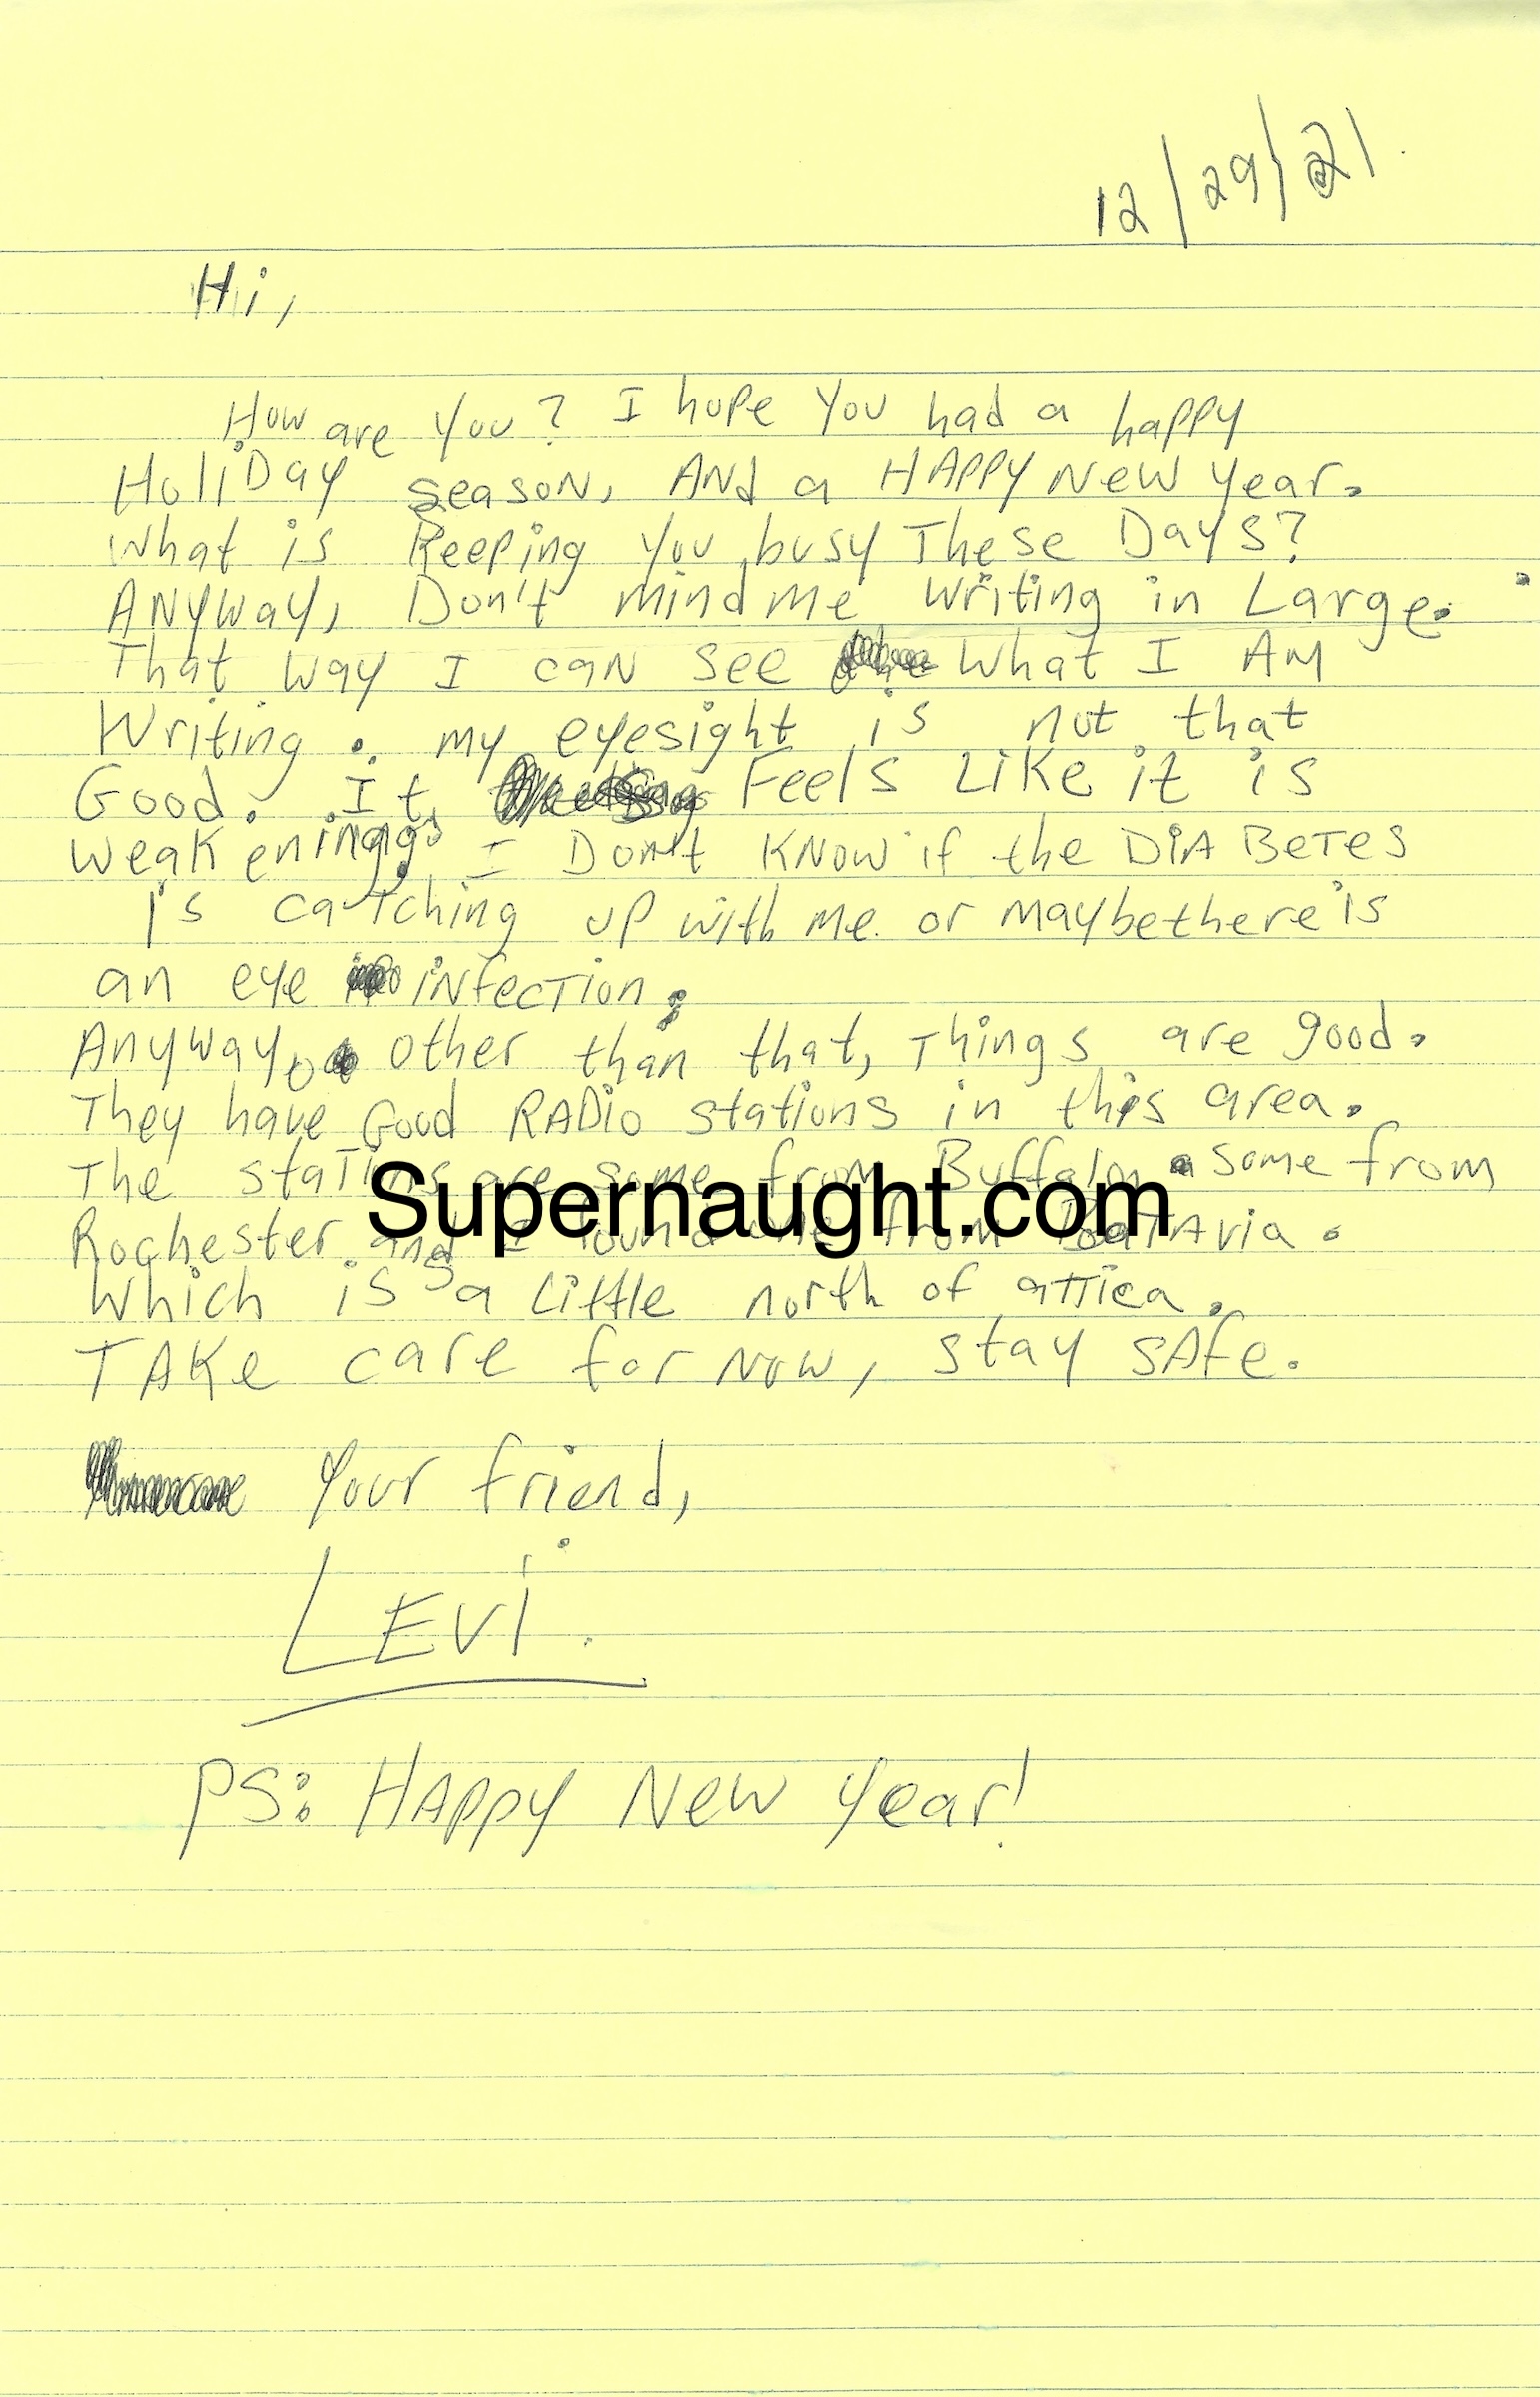 12/29/21.
Hi,
How are You? I hope You had a happy
HoliDay season, ANd a HAPPY New Year.
What is Keeping you busy These Days?
ANYWay, Don't mind me writing in Large.
That way I can see What I AM
Writing. my eyesight is not that
Good. It Feels Like it is
weakening. I Don't KNOW if the DIABeTes
is catching up with me. or maybe there is
an eye iNfecTion.
Anyway, other than that, Things are good.
They have Good RADio stations in this area.
The staTions are some from Buffalo some from
Rochester and I found one from BaTAvia.
Supernaught.com
Which is a little north of aTTica.
TAKe care for NOW, stay sAfe.
Your friend,
LEVi.
PS: HAppy New Year!